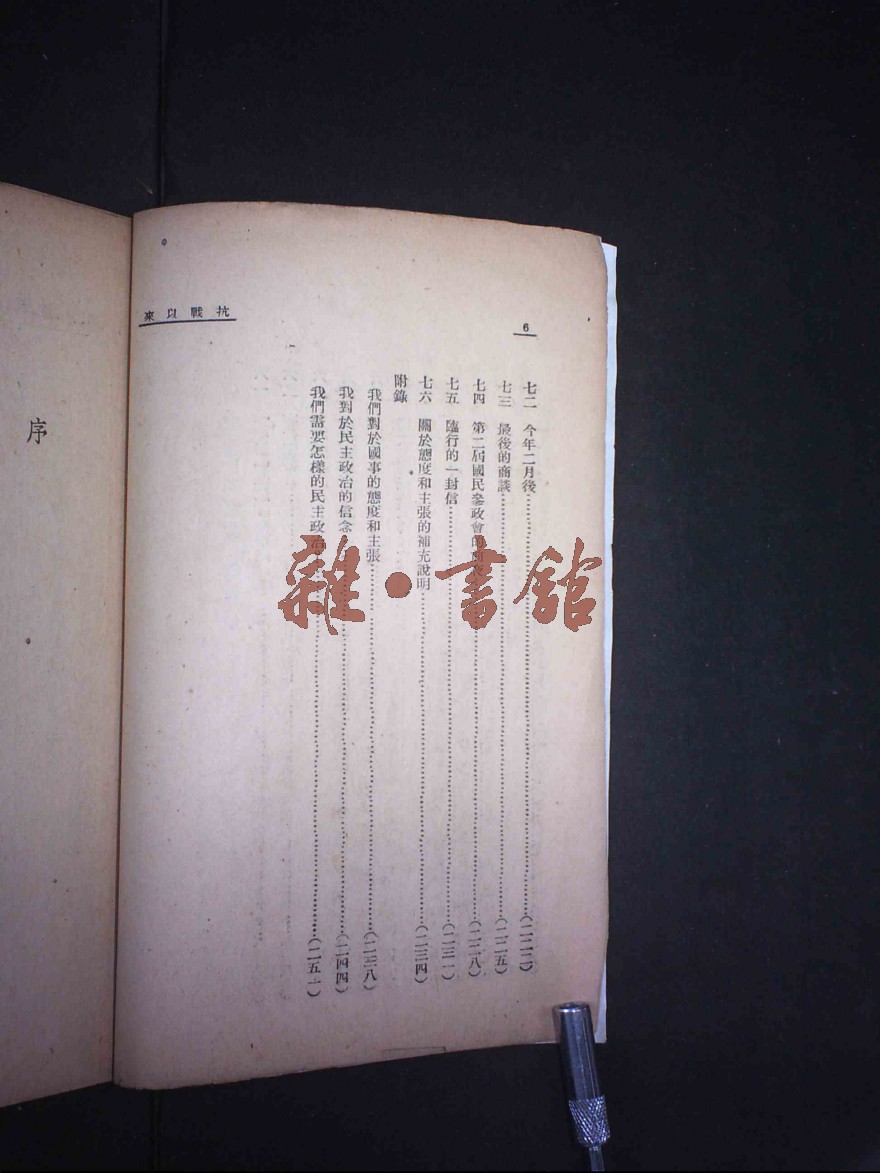 抗戰以來
6
七二　今年二月後……(二二二)
七三　最後的商談……(二二五)
七四　第二屆國民參政會的……(二二八)
七五　臨行的一封信……(二三一)
七六　關於態度和主張的補充說明……(二三四)
附錄
我們對於國事的態度和主張……(二三八)
我對於民主政治的信念……(二四四)
我們需要怎樣的民主政治……(二五一)
序
雜·書館